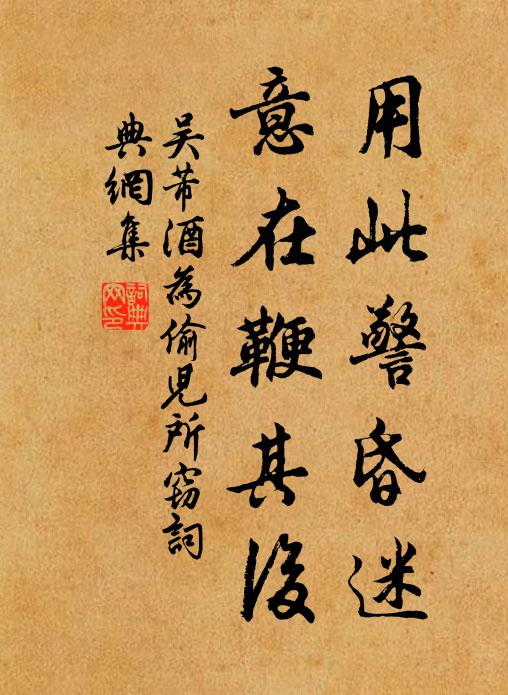 用此警昏迷
意在鞭其後
吴芾酒為偷兒所竊詞
典網集
詞典
网印